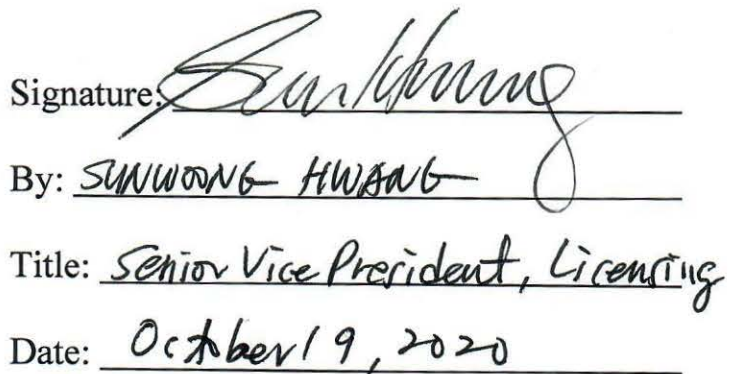 Signature:
By: SUNWOONG HWANG
Title: Senior Vice President, Licensing
Date: October 19, 2020